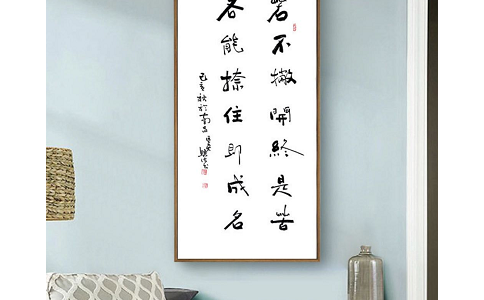 若不撇開終是苦
各能捺住即成名
己亥秋於南昌